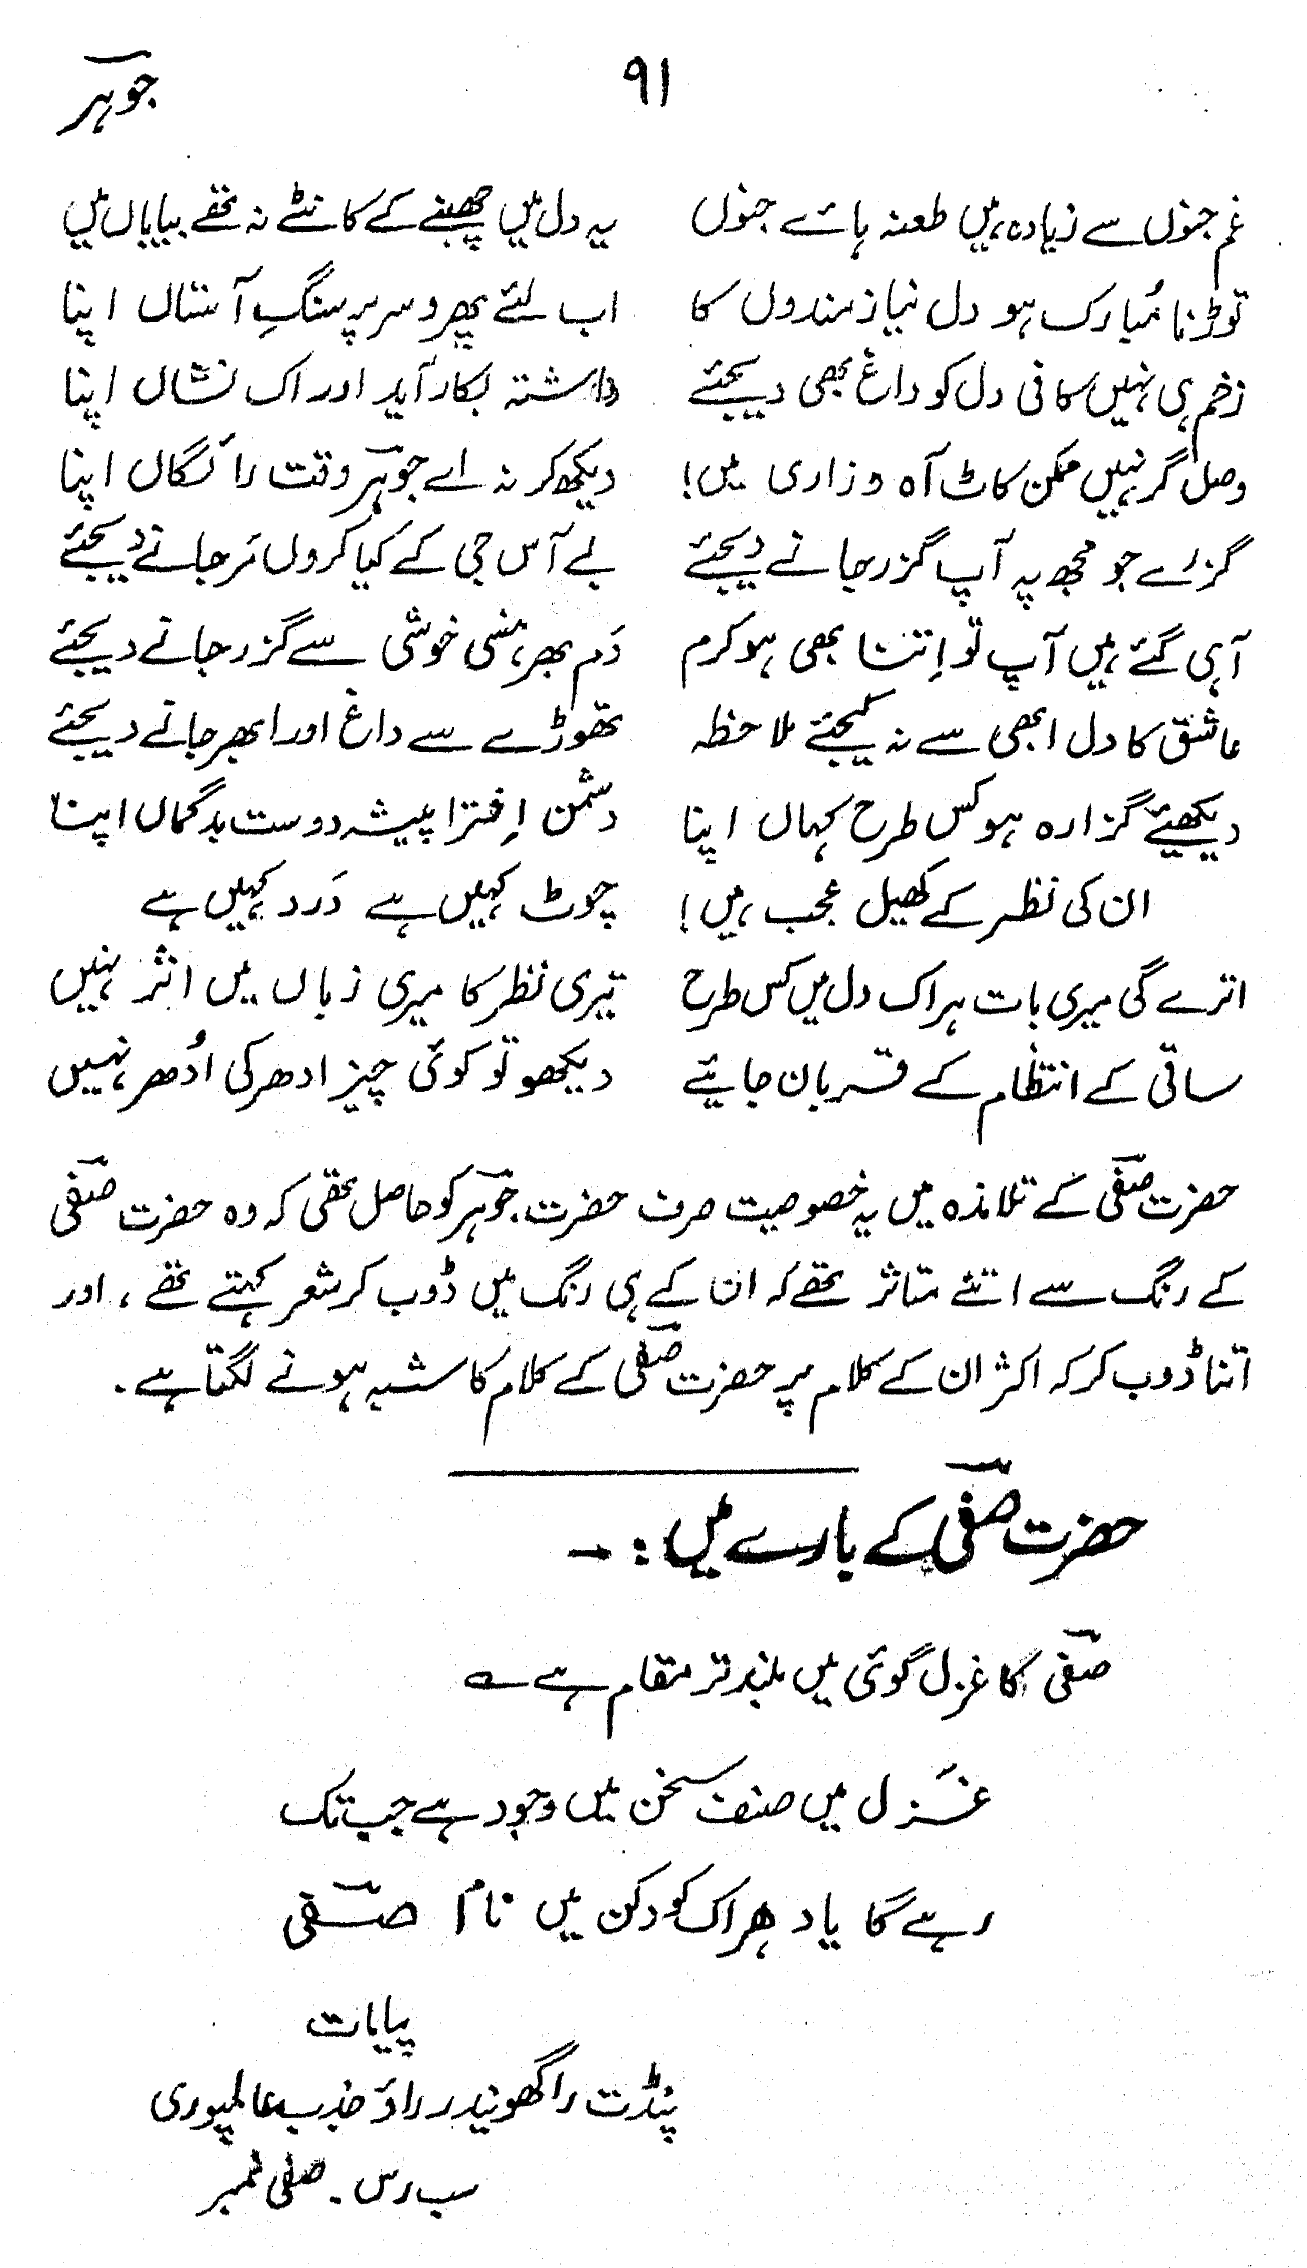 جوہر
۹۱
غم جنوں سے زیادہ ہیں طعنہ ہائے جنوں یہ دل میں چھبنے کے کانٹے نہ تھے بیاباں میں
توڑنا مُبارک ہو دل نیازمندوں کا اب لئے پھرو سر پر سنگِ آستاں اپنا
زخم ہی نہیں کافی دل کو داغ بھی دیجئے داشتہ بکار آید اور اک نشاں اپنا
وصل گر نہیں ممکن کاٹ آہ و زاری میں! دیکھ کر نہ اے جوہر وقت رائگاں اپنا
گزرے جو مجھ پہ آپ گزر جانے دیجئے بے آس جی کے کیا کروں مَر جانے دیجئے
آہی گئے ہیں آپ تو اِتنا بھی ہو کرم دَم بھر ہنسی خوشی سے گزر جانے دیجئے
عاشق کا دل ابھی سے نہ کیجئے ملاحظہ تھوڑے سے داغ اور ابھر جانے دیجئے
دیکھیئے گزارہ ہو کس طرح کہاں اپنا دشمن اِفترا پیشہ دوست بدگماں اپنا
ان کی نظر کے کھیل عجب ہیں! چوٹ کہیں ہے دَرد کہیں ہے
اترے گی میری بات ہر اک دل میں کس طرح تیری نظر کا میری زباں میں اثر نہیں
ساقی کے انتظام کے قربان جایئے دیکھو تو کوئی چیز ادھر کی اُدھر نہیں
حضرت صفی کے تلامذہ میں یہ خصوصیت صرف حضرت جوہر کو حاصل تھی کہ وہ حضرت صفی
کے رنگ سے اتنے متاثر تھے کہ ان کے ہی رنگ میں ڈوب کر شعر کہتے تھے، اور
اتنا ڈوب کر کہ اکثر ان کے کلام پر حضرت صفی کے کلام کا شبہ ہونے لگتا ہے۔
حضرت صفی کے بارے میں :-
صفی کا غزل گوئی میں بلند تر مقام ہے ؎
غزل میں صنف سخن میں وجود ہے جب تک
رہے گا یاد ہر اک کو دکن میں نام صفی
بیابات
پنڈت راگھویندر راؤ جذب عالمپوری
سب رس۔ صفی نمبر